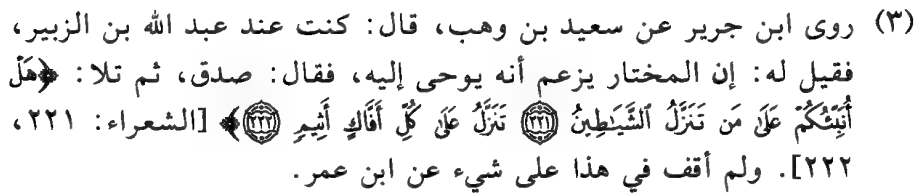 (٣) روى ابن جرير عن سعيد بن وهب، قال: كنت عند عبد الله بن الزبير،
فقيل له: إن المختار يزعم أنه يوحى إليه، فقال: صدق، ثم تلا: ﴿هَلْ
أُنَبِّئُكُمْ عَلَىٰ مَن تَنَزَّلُ ٱلشَّيَٰطِينُ ﴿٢٢١﴾ تَنَزَّلُ عَلَىٰ كُلِّ أَفَّاكٍ أَثِيمٍ ﴿٢٢٢﴾﴾ [الشعراء: ٢٢١،
٢٢٢]. ولم أقف في هذا على شيء عن ابن عمر.